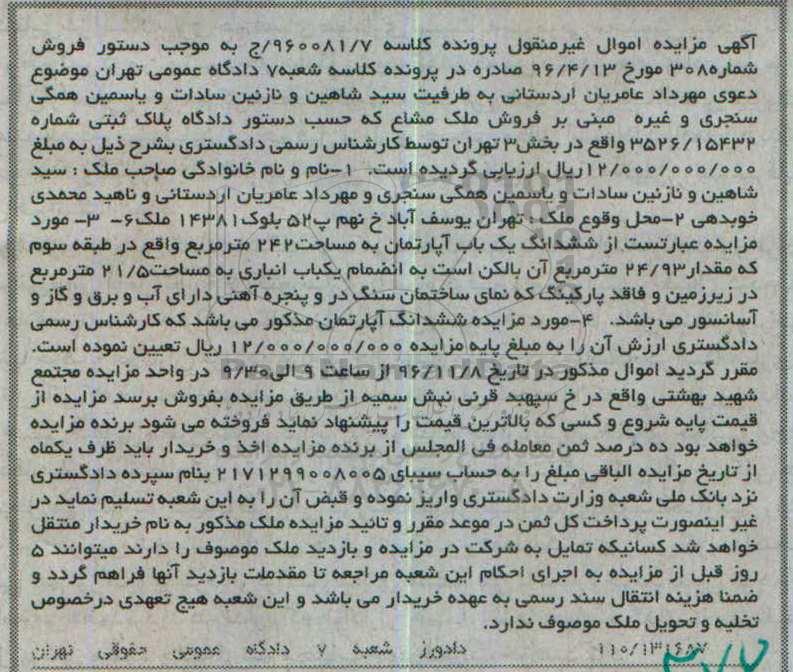 آگهی مزایده اموال غیرمنقول پرونده کلاسه ۹۶۰۰۸۱/۷/ج به موجب دستور فروش
شماره۳۰۸ مورخ ۹۶/۴/۱۳ صادره در پرونده کلاسه شعبه۷ دادگاه عمومی تهران موضوع
دعوی مهرداد عامریان اردستانی به طرفیت سید شاهین و نازنین سادات و یاسمین همگی
سنجری و غیره مبنی بر فروش ملک مشاع که حسب دستور دادگاه پلاک ثبتی شماره
۳۵۲۶/۱۵۴۳۲ واقع در بخش۳ تهران توسط کارشناس رسمی دادگستری بشرح ذیل به مبلغ
۱۲/۰۰۰/۰۰۰/۰۰۰ریال ارزیابی گردیده است. ۱-نام و نام خانوادگی صاحب ملک : سید
شاهین و نازنین سادات و یاسمین همگی سنجری و مهرداد عامریان اردستانی و ناهید محمدی
خوبدهی ۲-محل وقوع ملک : تهران یوسف آباد خ نهم پ۵۲ بلوک۱۴۳۸۱ ملک۶- ۳- مورد
مزایده عبارتست از ششدانگ یک باب آپارتمان به مساحت۲۴۲ مترمربع واقع در طبقه سوم
که مقدار۲۴/۹۳ مترمربع آن بالکن است به انضمام یکباب انباری به مساحت۲۱/۵ مترمربع
در زیرزمین و فاقد پارکینگ که نمای ساختمان سنگ در و پنجره آهنی دارای آب و برق و گاز و
آسانسور می باشد. ۴-مورد مزایده ششدانگ آپارتمان مذکور می باشد که کارشناس رسمی
دادگستری ارزش آن را به مبلغ پایه مزایده ۱۲/۰۰۰/۰۰۰/۰۰۰ ریال تعیین نموده است.
مقرر گردید اموال مذکور در تاریخ ۹۶/۱۱/۸ از ساعت ۹ الی۹/۳۰ در واحد مزایده مجتمع
شهید بهشتی واقع در خ سپهبد قرنی نبش سمیه از طریق مزایده بفروش برسد مزایده از
قیمت پایه شروع و کسی که بالاترین قیمت را پیشنهاد نماید فروخته می شود برنده مزایده
خواهد بود ده درصد ثمن معامله فی المجلس از برنده مزایده اخذ و خریدار باید ظرف یکماه
از تاریخ مزایده الباقی مبلغ را به حساب سیبای ۲۱۷۱۲۹۹۰۰۸۰۰۵ بنام سپرده دادگستری
نزد بانک ملی شعبه وزارت دادگستری واریز نموده و قبض آن را به این شعبه تسلیم نماید در
غیر اینصورت پرداخت کل ثمن در موعد مقرر و تائید مزایده ملک مذکور به نام خریدار منتقل
خواهد شد کسانیکه تمایل به شرکت در مزایده و بازدید ملک موصوف را دارند میتوانند ۵
روز قبل از مزایده به اجرای احکام این شعبه مراجعه تا مقدمات بازدید آنها فراهم گردد و
ضمنا هزینه انتقال سند رسمی به عهده خریدار می باشد و این شعبه هیچ تعهدی درخصوص
تخلیه و تحویل ملک موصوف ندارد.
۱۱۰/۱۳۱۶۸۷ دادورز شعبه ۷ دادگاه عمومی حقوقی تهران